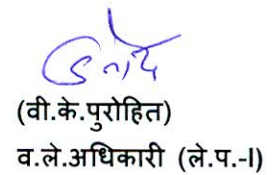 (वी.के.पुरोहित)
व.ले.अधिकारी (ले.प.-I)